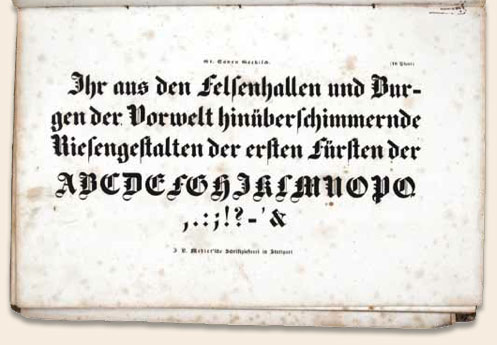 Gr. Canon Gothisch.
Ihr aus den Felsenhallen und Bur-
gen der Vorwelt hinüberschimmernde
Riesengestalten der ersten Fürsten der
ABCDEFGHIJKLMNOPQ
,.:;!?-'&
J. B. Metzler'sche Schriftgießerei in Stuttgart